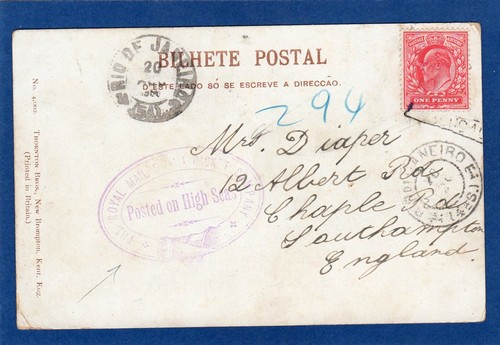 BILHETE POSTAL
D'ESTE LADO SÓ SE ESCREVE A DIRECCAO.
RIO DE JANEIRO
20
ONE PENNY
294
Mrs. Diaper
12 Albert Rd
Chaple Rd
Southampton
England.
THE ROYAL MAIL STEAM PACKET COMPANY
Posted on High Seas
JANEIRO
No. 4,000. THORNTON BROS., NEW BROMPTON, KENT, ENG.
(Printed in Britain.)